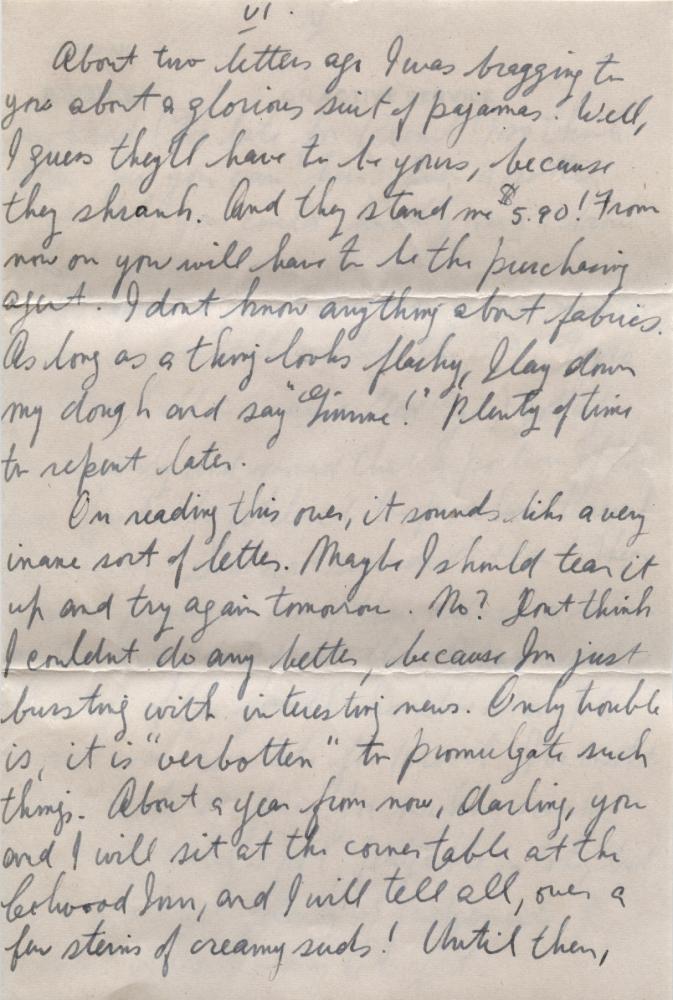 VI.
About two letters ago I was bragging to
you about a glorious suit of pajamas. Well,
I guess they'll have to be yours, because
they shrank. And they stand me $5.90! From
now on you will have to be the purchasing
agent. I dont know anything about fabrics.
As long as a thing looks flashy, I lay down
my dough and say "Gimme!" Plenty of time
to repent later.
On reading this over, it sounds like a very
inane sort of letter. Maybe I should tear it
up and try again tomorrow. No? Dont think
I couldnt do any better, because Im just
bursting with interesting news. Only trouble
is, it is "verbotten" to promulgate such
things. About a year from now, darling, you
and I will sit at the corner table at the
Inn, and I will tell all, over a
few steins of creamy suds! Until then,